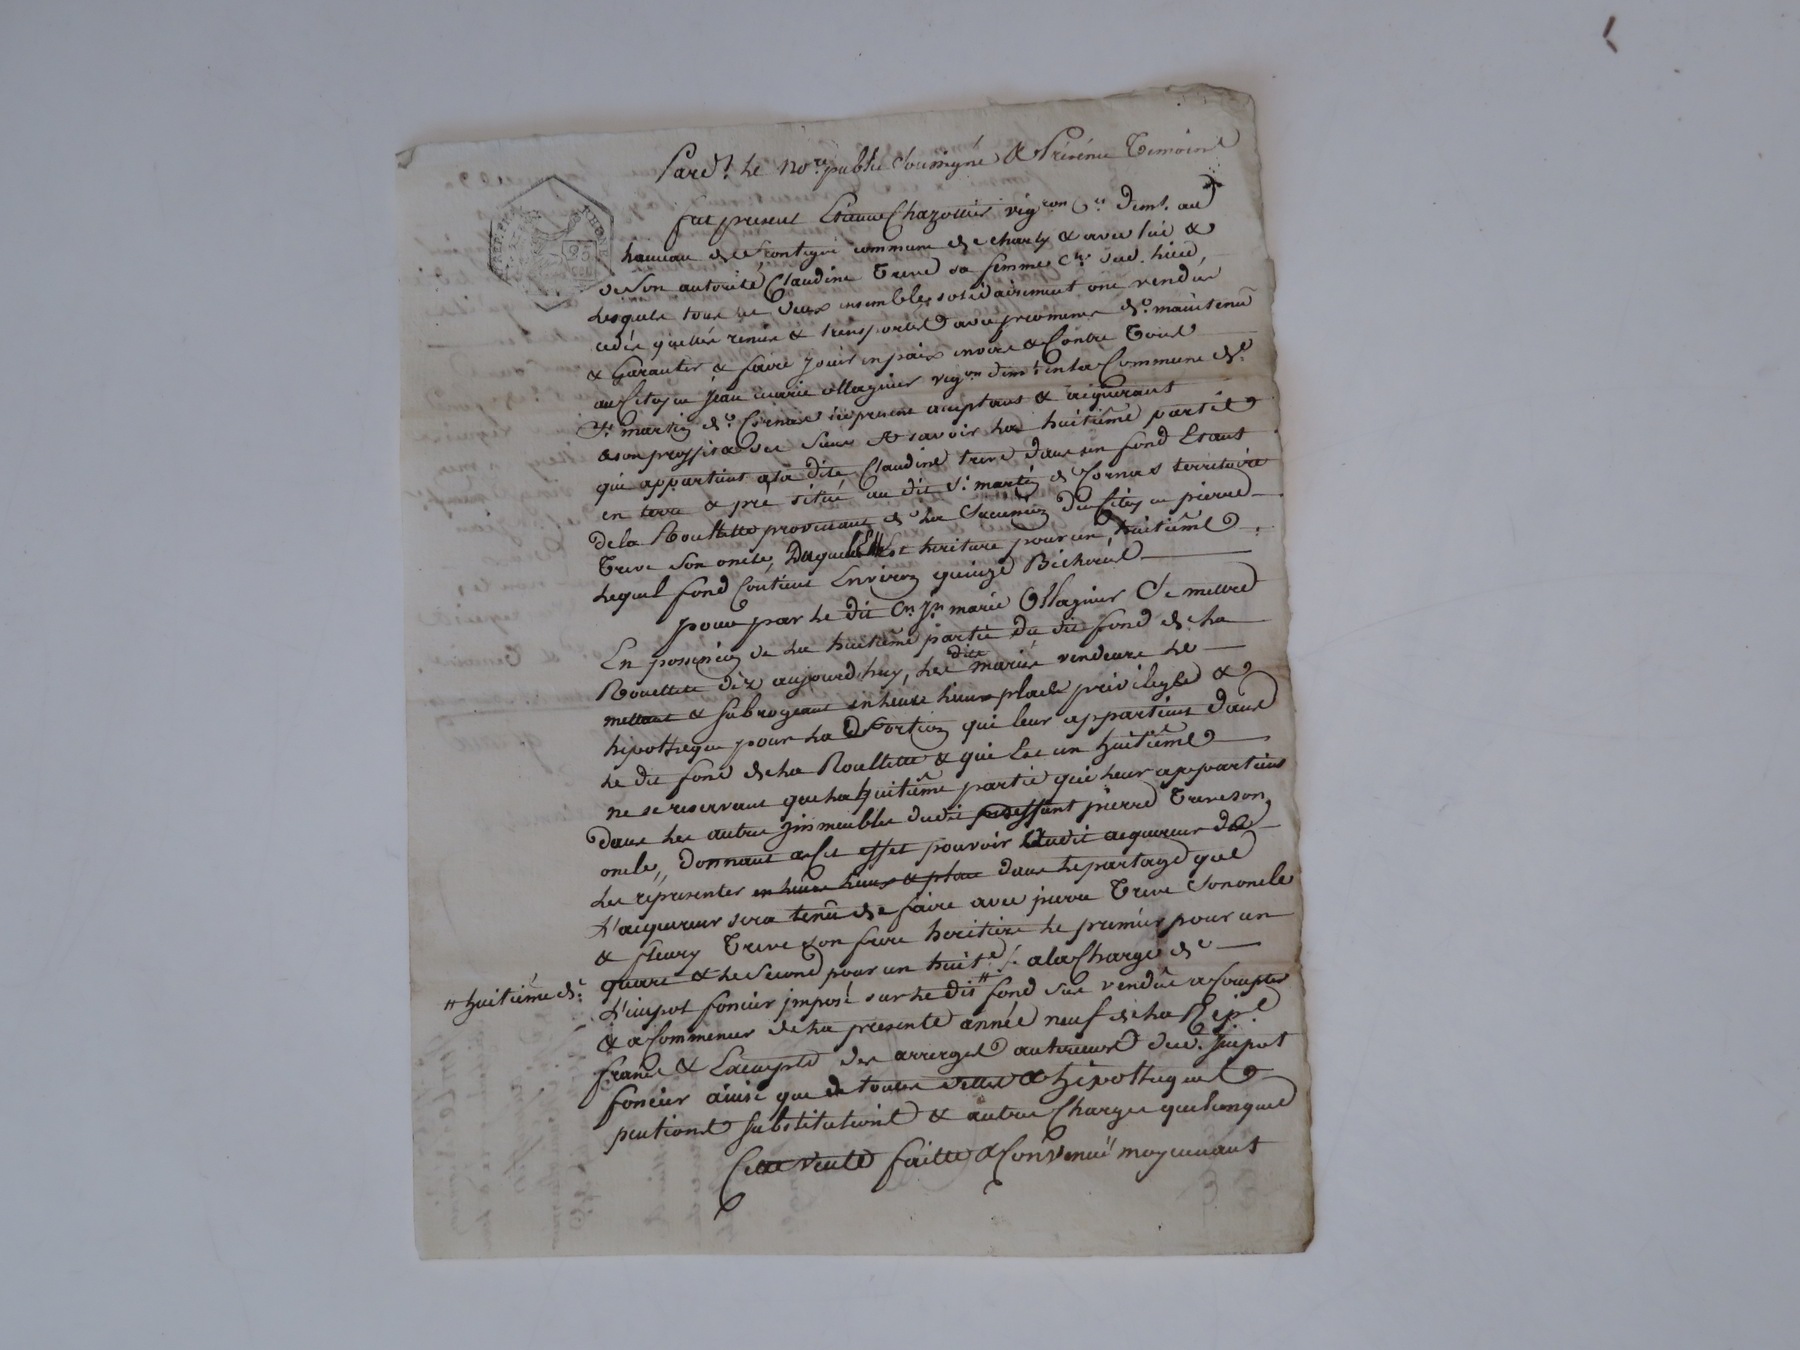 Pard.t le No.re public Soussigné & Présence Temoins
fut present Etienne Chazottier vig.ron C.en dem.t au
hameau de Frontigni commune de charly & avec lui &
de son autorité Claudine Treve sa femme C.ne dud. lieu,
Lesquels tous les deux ensembles solidairement ont vendu
cedé quitté remis & transporté avec promesse de maintenir
& Garantir & faire jouir en paix envers & Contre Tous
au Citoyen Jean marie ollagnier vig.on dem.t en la Commune de
S.t martin de Cornas icy present acceptant & aquerant
a son proffit & des siens A savoir La huitiême partie
qui appartient a la dite Claudine treve dans un fond Etant
en terre & pré situé au dit S.t martin de Cornas territoire
De la Roullette provenant de la Succession du Citoyen pierre
Treve Son oncle, Duquel Elle Est heritiere pour un huitiême
Lequel fond Contient Environ quinze Bicherées
pour par le dit C.n J.n marie Ollagnier Se mettre
En possession de La huitiême partie du dit fond de La
Rouellette dèz aujourd'huy, Les dits mariés vendeurs Le
mettant & subrogeant en leurs lieux place privileges &
hipotheque pour La Portion qui leur appartient dans
le dit fond de La Roullette & qui Est un huitiême
ne se reservant que La huitiême partie qui Leur appartient
dans Les autres Immeubles dudit pierre Treve son
oncle, Donnant a Cet effet pouvoir Audit aquereur de
Les représenter en leurs lieux & place dans le partage que
L'aquereur sera tenû de faire avec pierre Treve Son oncle
& fleury Treve son frere heritiers le premier pour un
quart & le Second pour un huit.e /. a la Charge de
L'impot foncier imposé sur Le dit " fond sus vendû a Compter
" huitiême de
& a Commencer de La presente année neuf de La Rep.e
franc.e & Exempte des arrerages anterieurs dud. Impot
foncier ainsi que de toutes dettes & hipotheques
pentions substitutions & autres Charges quelconques
Cette vente faitte & Convenué moyennant